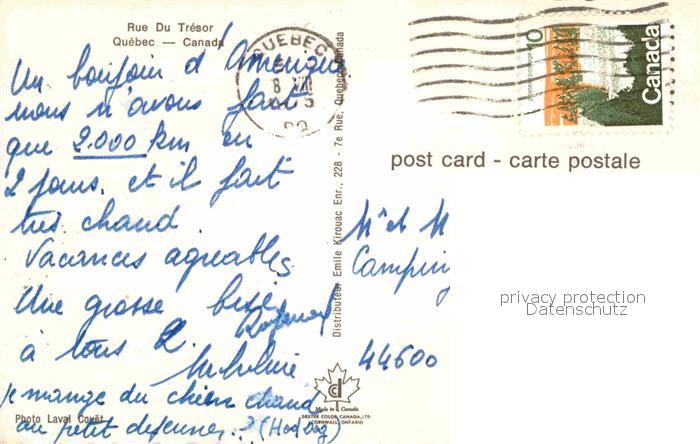 Rue Du Trésor
Québec — Canada
Un bonjour d'Amérique
nous n'avons fait
que 2.000 km en
2 jours. et il fait
très chaud.
Vacances agréables
Une grosse bise
à tous 2.
je mange du chien chaud
au petit dejeuner... (Hot dog)
Photo Laval Couët
QUEBEC
8 VIII
PQ
Distributeur Emile Kirouac Enr., 228 - 7e Rue, Quebec, Canada
Made in Canada
DEXTER COLOR CANADA, LTD.
CORNWALL, ONTARIO
10
Canada
post card - carte postale
Mr et M
Camping
44600
privacy protection
Datenschutz